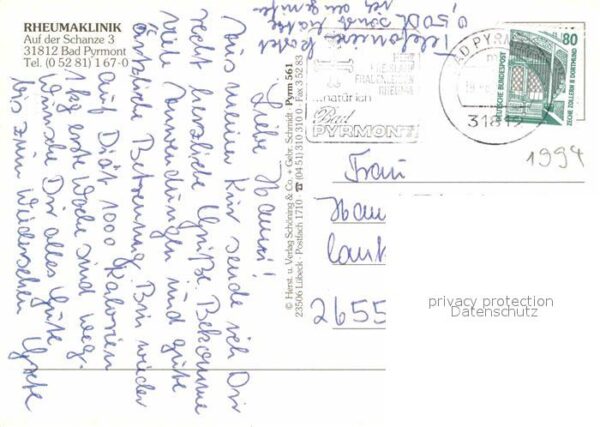 RHEUMAKLINIK
Auf der Schanze 3
31812 Bad Pyrmont
Tel. (0 52 81) 1 67-0
Liebe Hanni!
Aus meiner Kur sende ich Dir
recht herzliche Grüße. Bekomme
viele Anwendungen und gute
ärztliche Betreuung. Bin wieder
auf Diät 1000 Kalorien
1 kg erste Woche sind weg.
Wünsche Dir alles Gute
bis zum Wiedersehen
Telefonieren kostet
0,50 DM sonst hätte
ich angerufen
© Herst. u. Verlag Schöning & Co. + Gebr. Schmidt
23506 Lübeck · Postfach 1710 · ☎ (04 51) 310 310 0 · Fax 3 52 83
Pyrm 561
FRAUENLEIDEN
RHEUMA
...natürlich
Bad
PYRMONT
BAD PYRMONT
31812
80
DEUTSCHE BUNDESPOST
ZECHE ZOLLERN II DORTMUND
1994
Frau
Han
2655
privacy protection
Datenschutz